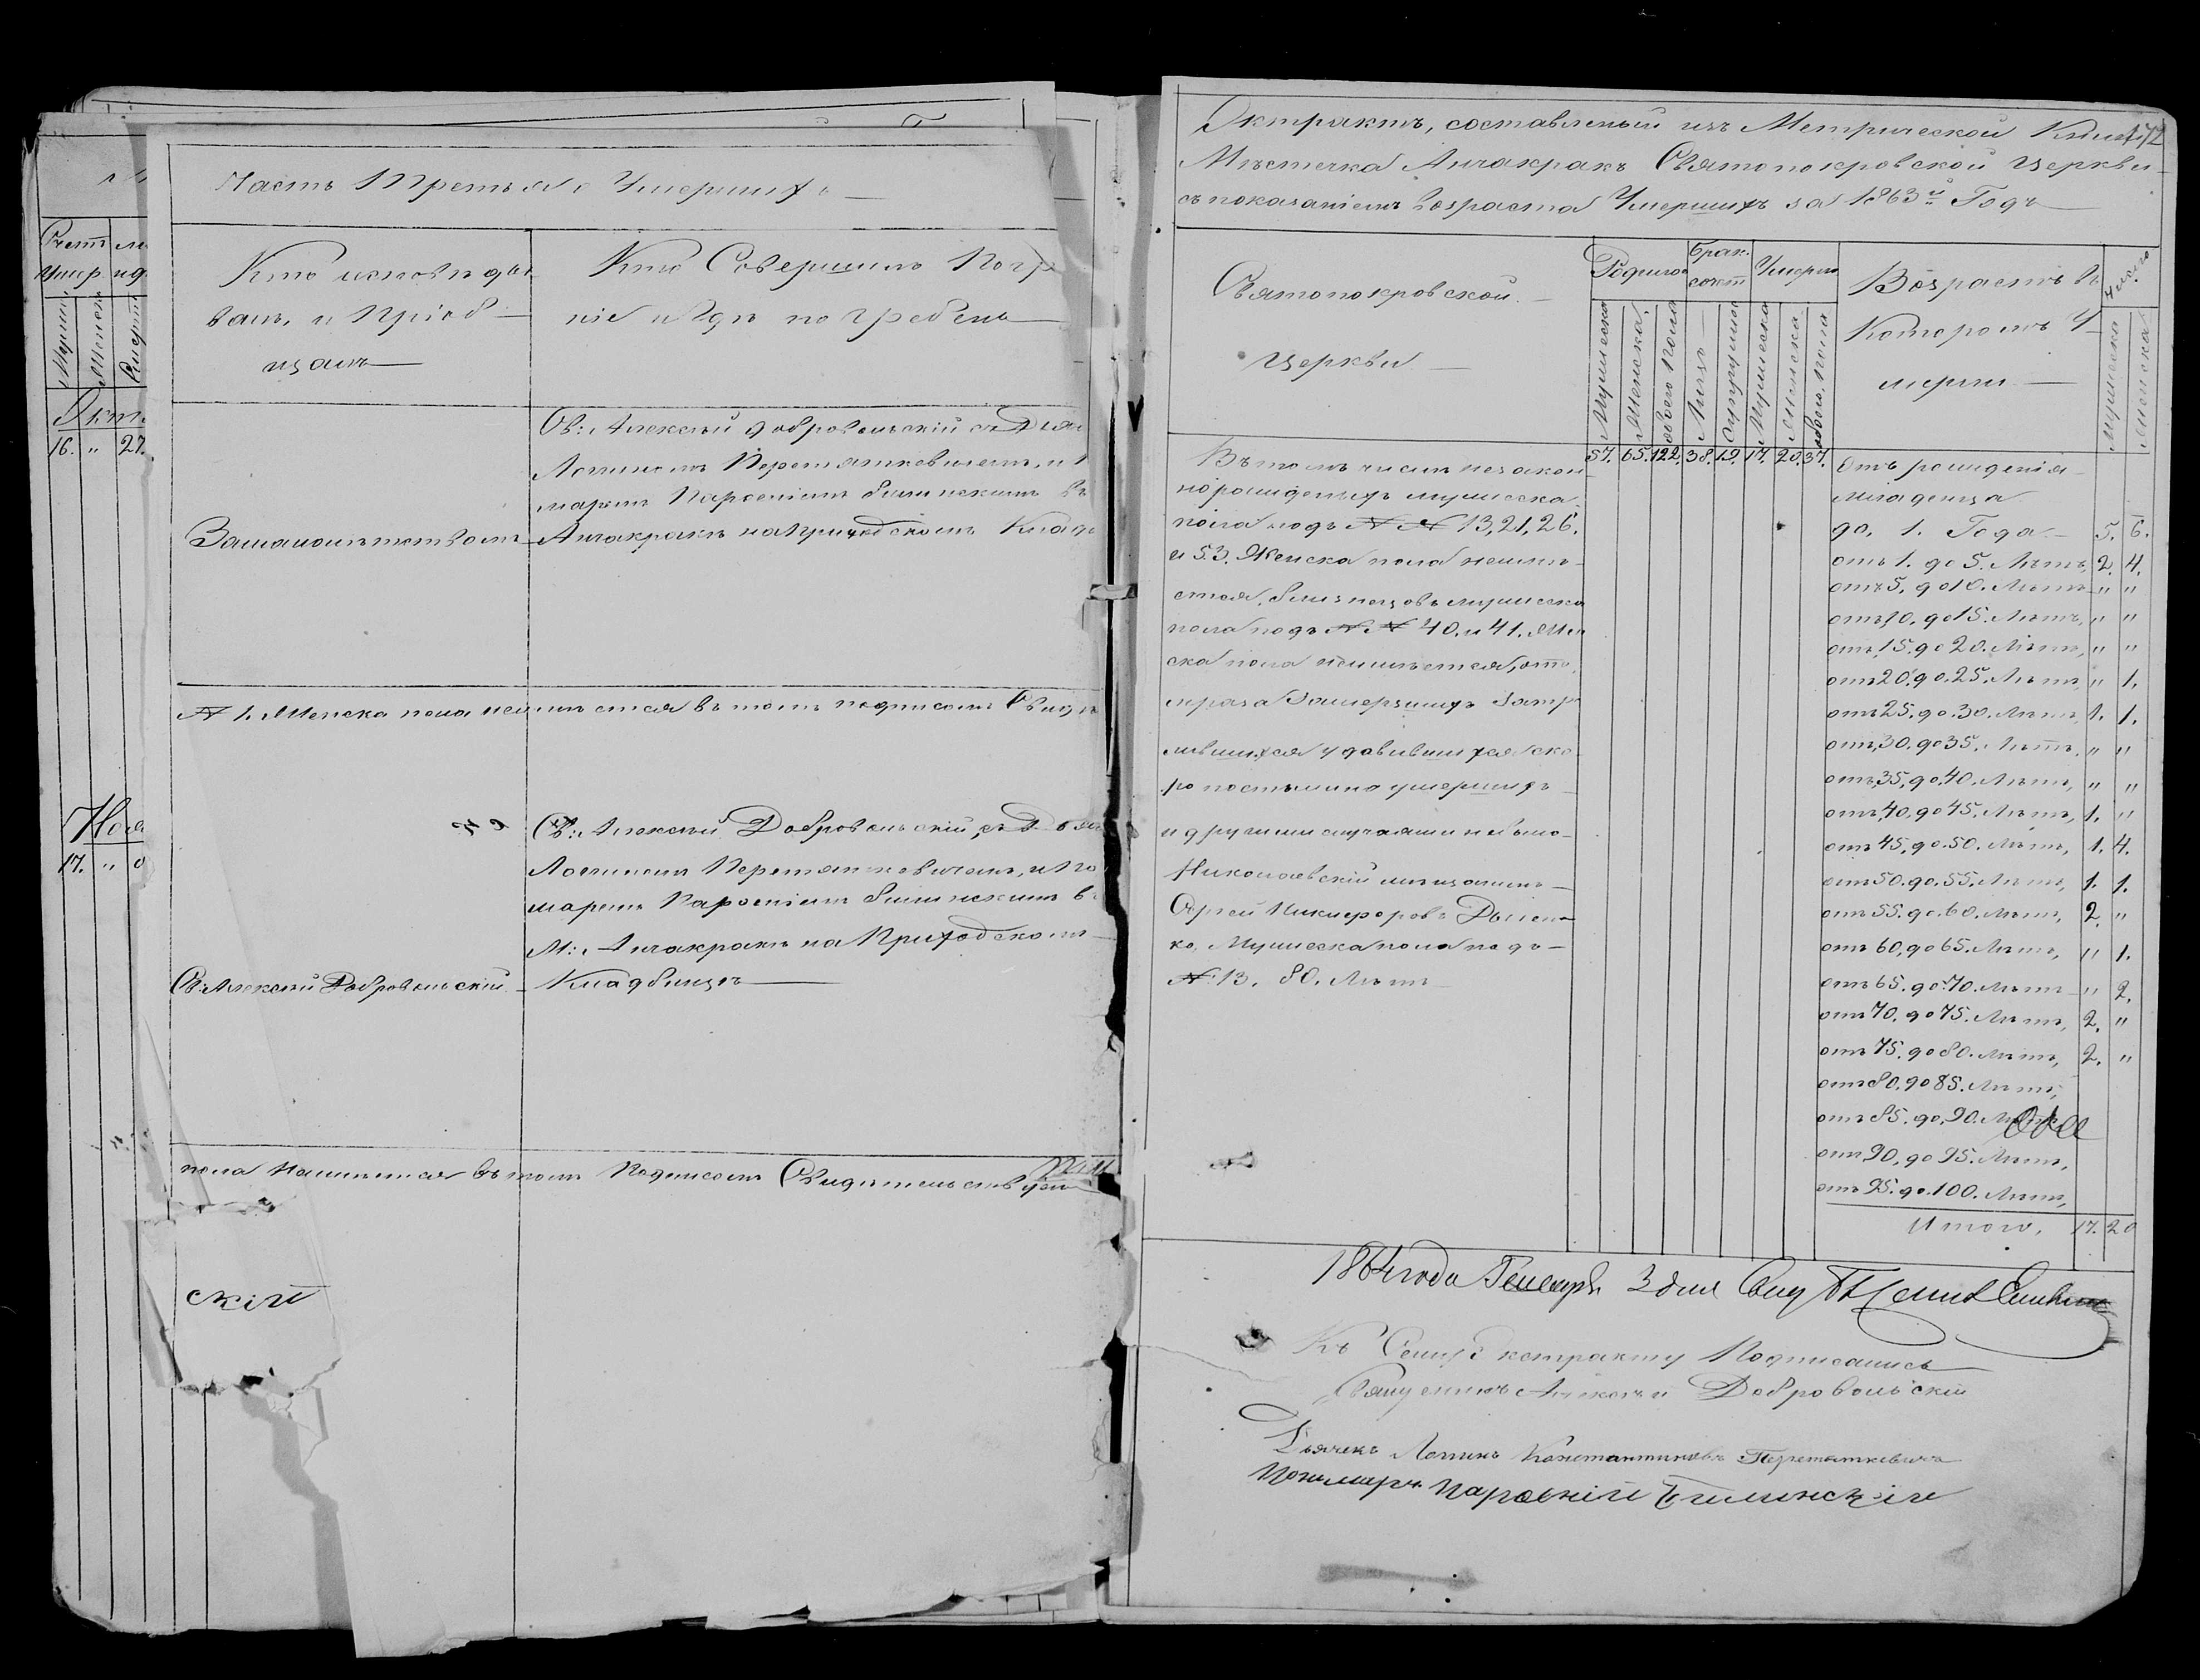 Часть Третья о Умершихъ
Счетъ
Умер.
Мужеск
Женск
16. " 27.
Ноя
17. " 0
Кто исповѣды
валъ и Пріоб
щалъ
Кто Совершилъ Погр
ніе и гдѣ погребены
Св: Алексѣй Добровольскій съ Дьяч
Логиномъ Перетятковичемъ, и П
марем Пароеніем Билинским въ
За малолѣтствомъ
Анчакракъ на Приходскомъ Кладб
№ 1. Женска пола неимѣется въ томъ подписомъ Свидѣ
Св: Алексѣй Добровольскій, съ Дьяч
Логиномъ Перетятковичемъ, и По
марем Пароеніем Билинским в
М: Анчакракъ на Приходскомъ
Св: Алексѣй Добровольскій
Кладбищѣ
пола неимѣется въ томъ Подписомъ Свидѣтельствуем
скій
Экстрактъ, составленый изъ Метрической Книги
172
Мѣстечка Анчакракъ Святопокровской Церкви
съ показаніемъ возраста Умершихъ за 1863й Годъ
Святопокровской
Церкви
Родилось
Брак.
сочет
Умерло
Мужеска
Женска
обоего Пола
Лицъ
Супружествъ
Мужеска
Женска
обоего Пола
Возрастъ въ
Которомъ У
мерли
Число
Мужеска
Женска
57. 65. 122. 38. 19. 17. 20. 37.
Въ томъ числѣ незакон
норожденыхъ мужеска
пола подъ №№ 13, 21, 26.
и 53. Женска пола неимѣ
ется, близнецовъ мужеска
пола подъ №№ 40. и 41. Жен
ска пола неимѣется, отъ
мраза Замерзшихъ
удавившихся ско
ропостыжно умершихъ
и другими случаями небыло
Николаевскій мѣщанинъ
Сергей Никифоровъ
ко, Мужеска пола подъ
№ 13. 80. Лѣтъ
отъ рожденія
младенца
до 1. Года 5. 6.
отъ 1. до 5. Лѣтъ, 2. 4.
отъ 5. до 10. Лѣтъ " "
отъ 10. до 15. Лѣтъ, " "
отъ 15. до 20. Лѣтъ, " "
отъ 20. до 25. Лѣтъ, " 1.
отъ 25. до 30. Лѣтъ, 1. 1.
отъ 30. до 35. Лѣтъ, " "
отъ 35. до 40. Лѣтъ, " "
отъ 40. до 45. Лѣтъ, 1. "
отъ 45. до 50. Лѣтъ, 1. 4.
отъ 50. до 55. Лѣтъ, 1. 1.
отъ 55. до 60. Лѣтъ, 2. "
отъ 60. до 65. Лѣтъ, " 1.
отъ 65. до 70. Лѣтъ " 2.
отъ 70. до 75. Лѣтъ, 2. "
отъ 75. до 80. Лѣтъ, 2. "
отъ 80. до 85. Лѣтъ,
отъ 85. до 90. Лѣтъ
отъ 90. до 95. Лѣтъ,
отъ 95. до 100. Лѣтъ,
Итого. 17. 20
1864 года Генваря 3 дня
Къ Сему Экстракту Подписались
Священикъ Алексѣй Добровольскій
Дьячекъ Логинъ Константиновъ Перетяткевичъ
Пономарь Пароеній Билинскій